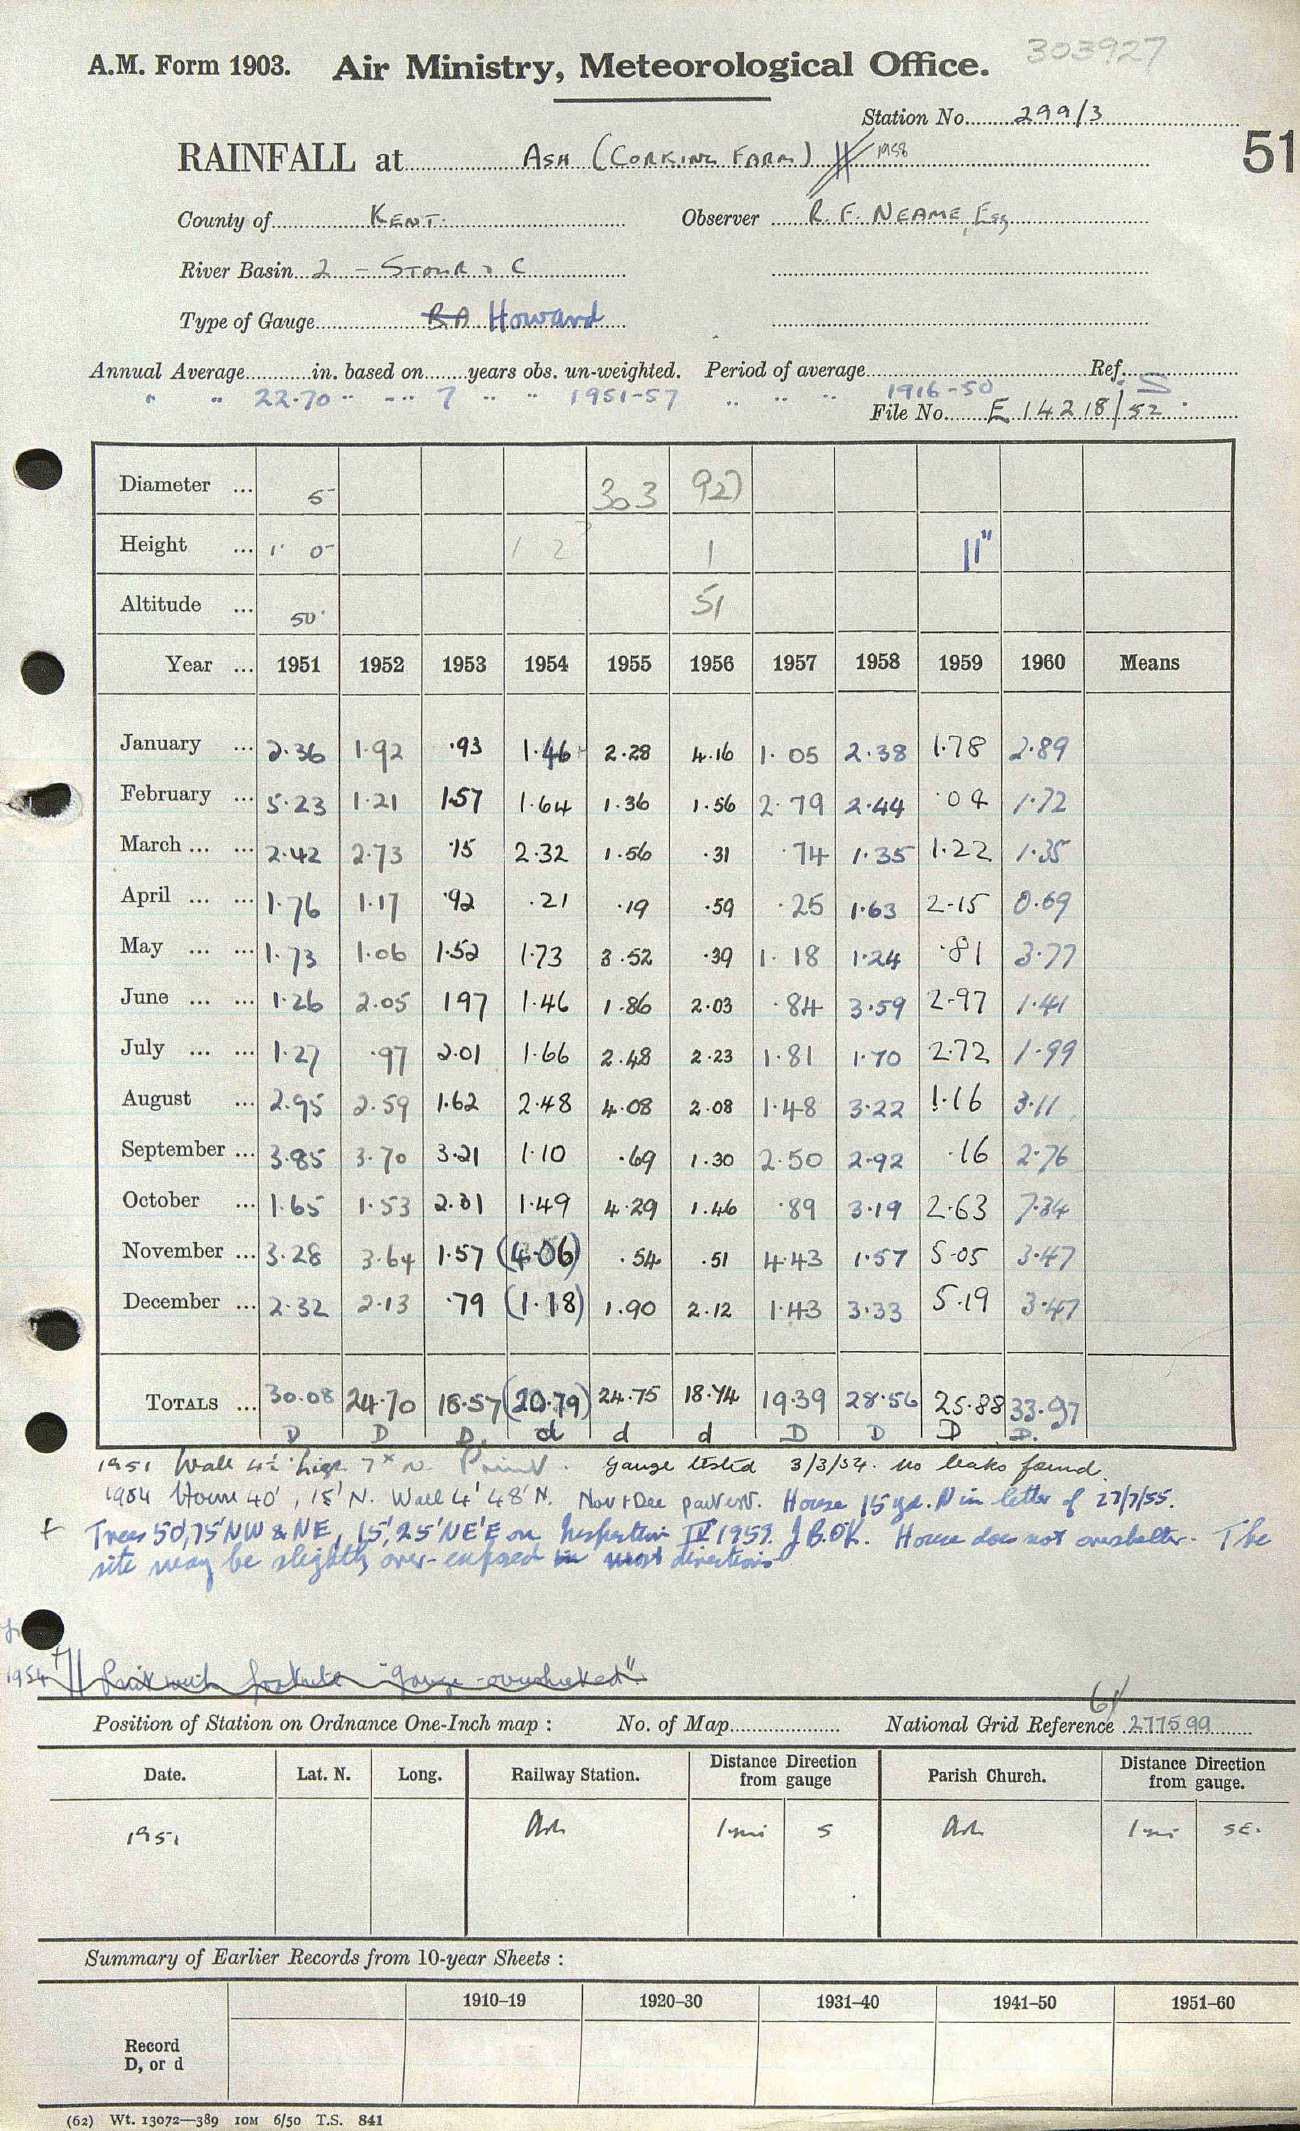 303927
A.M. Form 1903. Air Ministry, Meteorological Office.
Station No. 299/3
RAINFALL at ASH (CORKING FARM) 1958
51
County of KENT. Observer R. F. NEAME, Esq
River Basin 2 - STOUR & C
Type of Gauge Howard
Annual Average in. based on years obs. un-weighted. Period of average Ref. S
" " 22.70 " " " 7 " " 1951-57 " " " 1916-50
File No. E 14218/52
Diameter ... 5 303 927
Height ... 1' 0" 1 2 1 11"
Altitude ... 50' 51
Year ... 1951 1952 1953 1954 1955 1956 1957 1958 1959 1960 Means
January ... 2.36 1.92 .93 1.46 2.28 4.16 1.05 2.38 1.78 2.89
February ... 5.23 1.21 1.57 1.64 1.36 1.56 2.79 2.44 .04 1.72
March ... ... 2.42 2.73 .15 2.32 1.56 .31 .74 1.35 1.22 1.35
April ... ... 1.76 1.17 .92 .21 .19 .59 .25 1.63 2.15 0.69
May ... ... 1.73 1.06 1.52 1.73 3.52 .39 1.18 1.24 .81 3.77
June ... ... 1.26 2.05 1.97 1.46 1.86 2.03 .84 3.59 2.97 1.41
July ... ... 1.27 .97 2.01 1.66 2.48 2.23 1.81 1.70 2.72 1.99
August ... 2.95 2.59 1.62 2.48 4.08 2.08 1.48 3.22 1.16 3.11
September ... 3.85 3.70 3.21 1.10 .69 1.30 2.50 2.92 .16 2.76
October ... 1.65 1.53 2.31 1.49 4.29 1.46 .89 3.19 2.63 7.34
November ... 3.28 3.64 1.57 (4.06) .54 .51 4.43 1.57 5.05 3.47
December ... 2.32 2.13 .79 (1.18) 1.90 2.12 1.43 3.33 5.19 3.47
TOTALS ... 30.08 24.70 18.57 (20.79) 24.75 18.74 19.39 28.56 25.88 33.97
D D D. d d d D D D D.
1951 Wall 4½' high 7' N. Gauge tested 3/3/54. no leaks found.
1954 House 40', 15' N. Wall 4' 48' N. Nov & Dec part est. House 15 yd. N in letter of 27/7/55.
+ Trees 50', 75' NW & NE, 15', 25' NE'E on Inspection IX 1959. J.B.O'K. House does not overshelter. The
site may be slightly over-exposed in most directions
1954 "gauge oversheltered"
61
Position of Station on Ordnance One-Inch map : No. of Map National Grid Reference 277599
Date. Lat. N. Long. Railway Station. Distance from gauge Direction Parish Church. Distance from gauge. Direction
1951 Ash 1 mi S Ash 1 mi SE.
Summary of Earlier Records from 10-year Sheets :
1910–19 1920–30 1931–40 1941–50 1951–60
Record
D, or d
(62) Wt. 13072—389 10M 6/50 T.S. 841